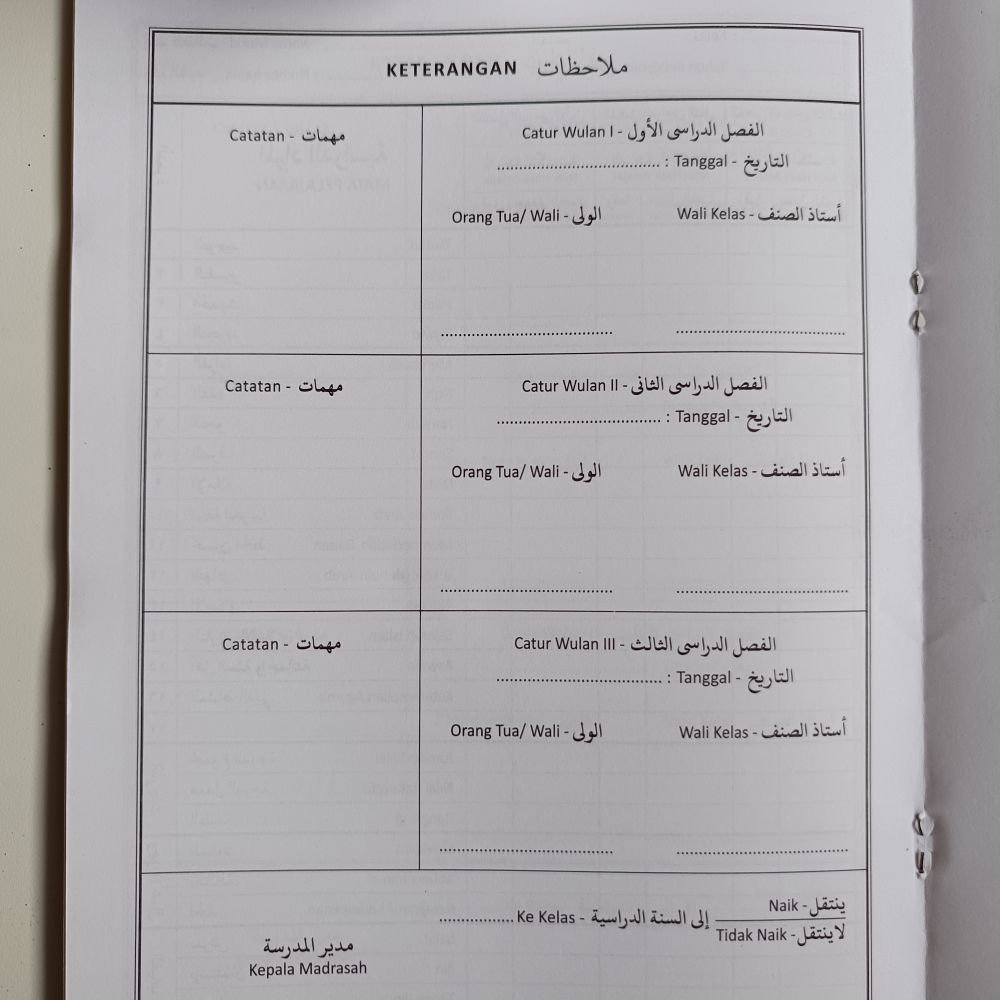 KETERANGAN ملاحظات
Catatan - مهمات
Catur Wulan I - الفصل الدراسى الأول
التاريخ - Tanggal : .....................................
Orang Tua/ Wali - الولى
Wali Kelas - أستاذ الصنف
.......................................
.......................................
Catatan - مهمات
Catur Wulan II - الفصل الدراسى الثانى
التاريخ - Tanggal : .....................................
Orang Tua/ Wali - الولى
Wali Kelas - أستاذ الصنف
.......................................
.......................................
Catatan - مهمات
Catur Wulan III - الفصل الدراسى الثالث
التاريخ - Tanggal : .....................................
Orang Tua/ Wali - الولى
Wali Kelas - أستاذ الصنف
.......................................
.......................................
ينتقل - Naik
لاينتقل - Tidak Naik
إلى السنة الدراسية - Ke Kelas .................
مدير المدرسة
Kepala Madrasah